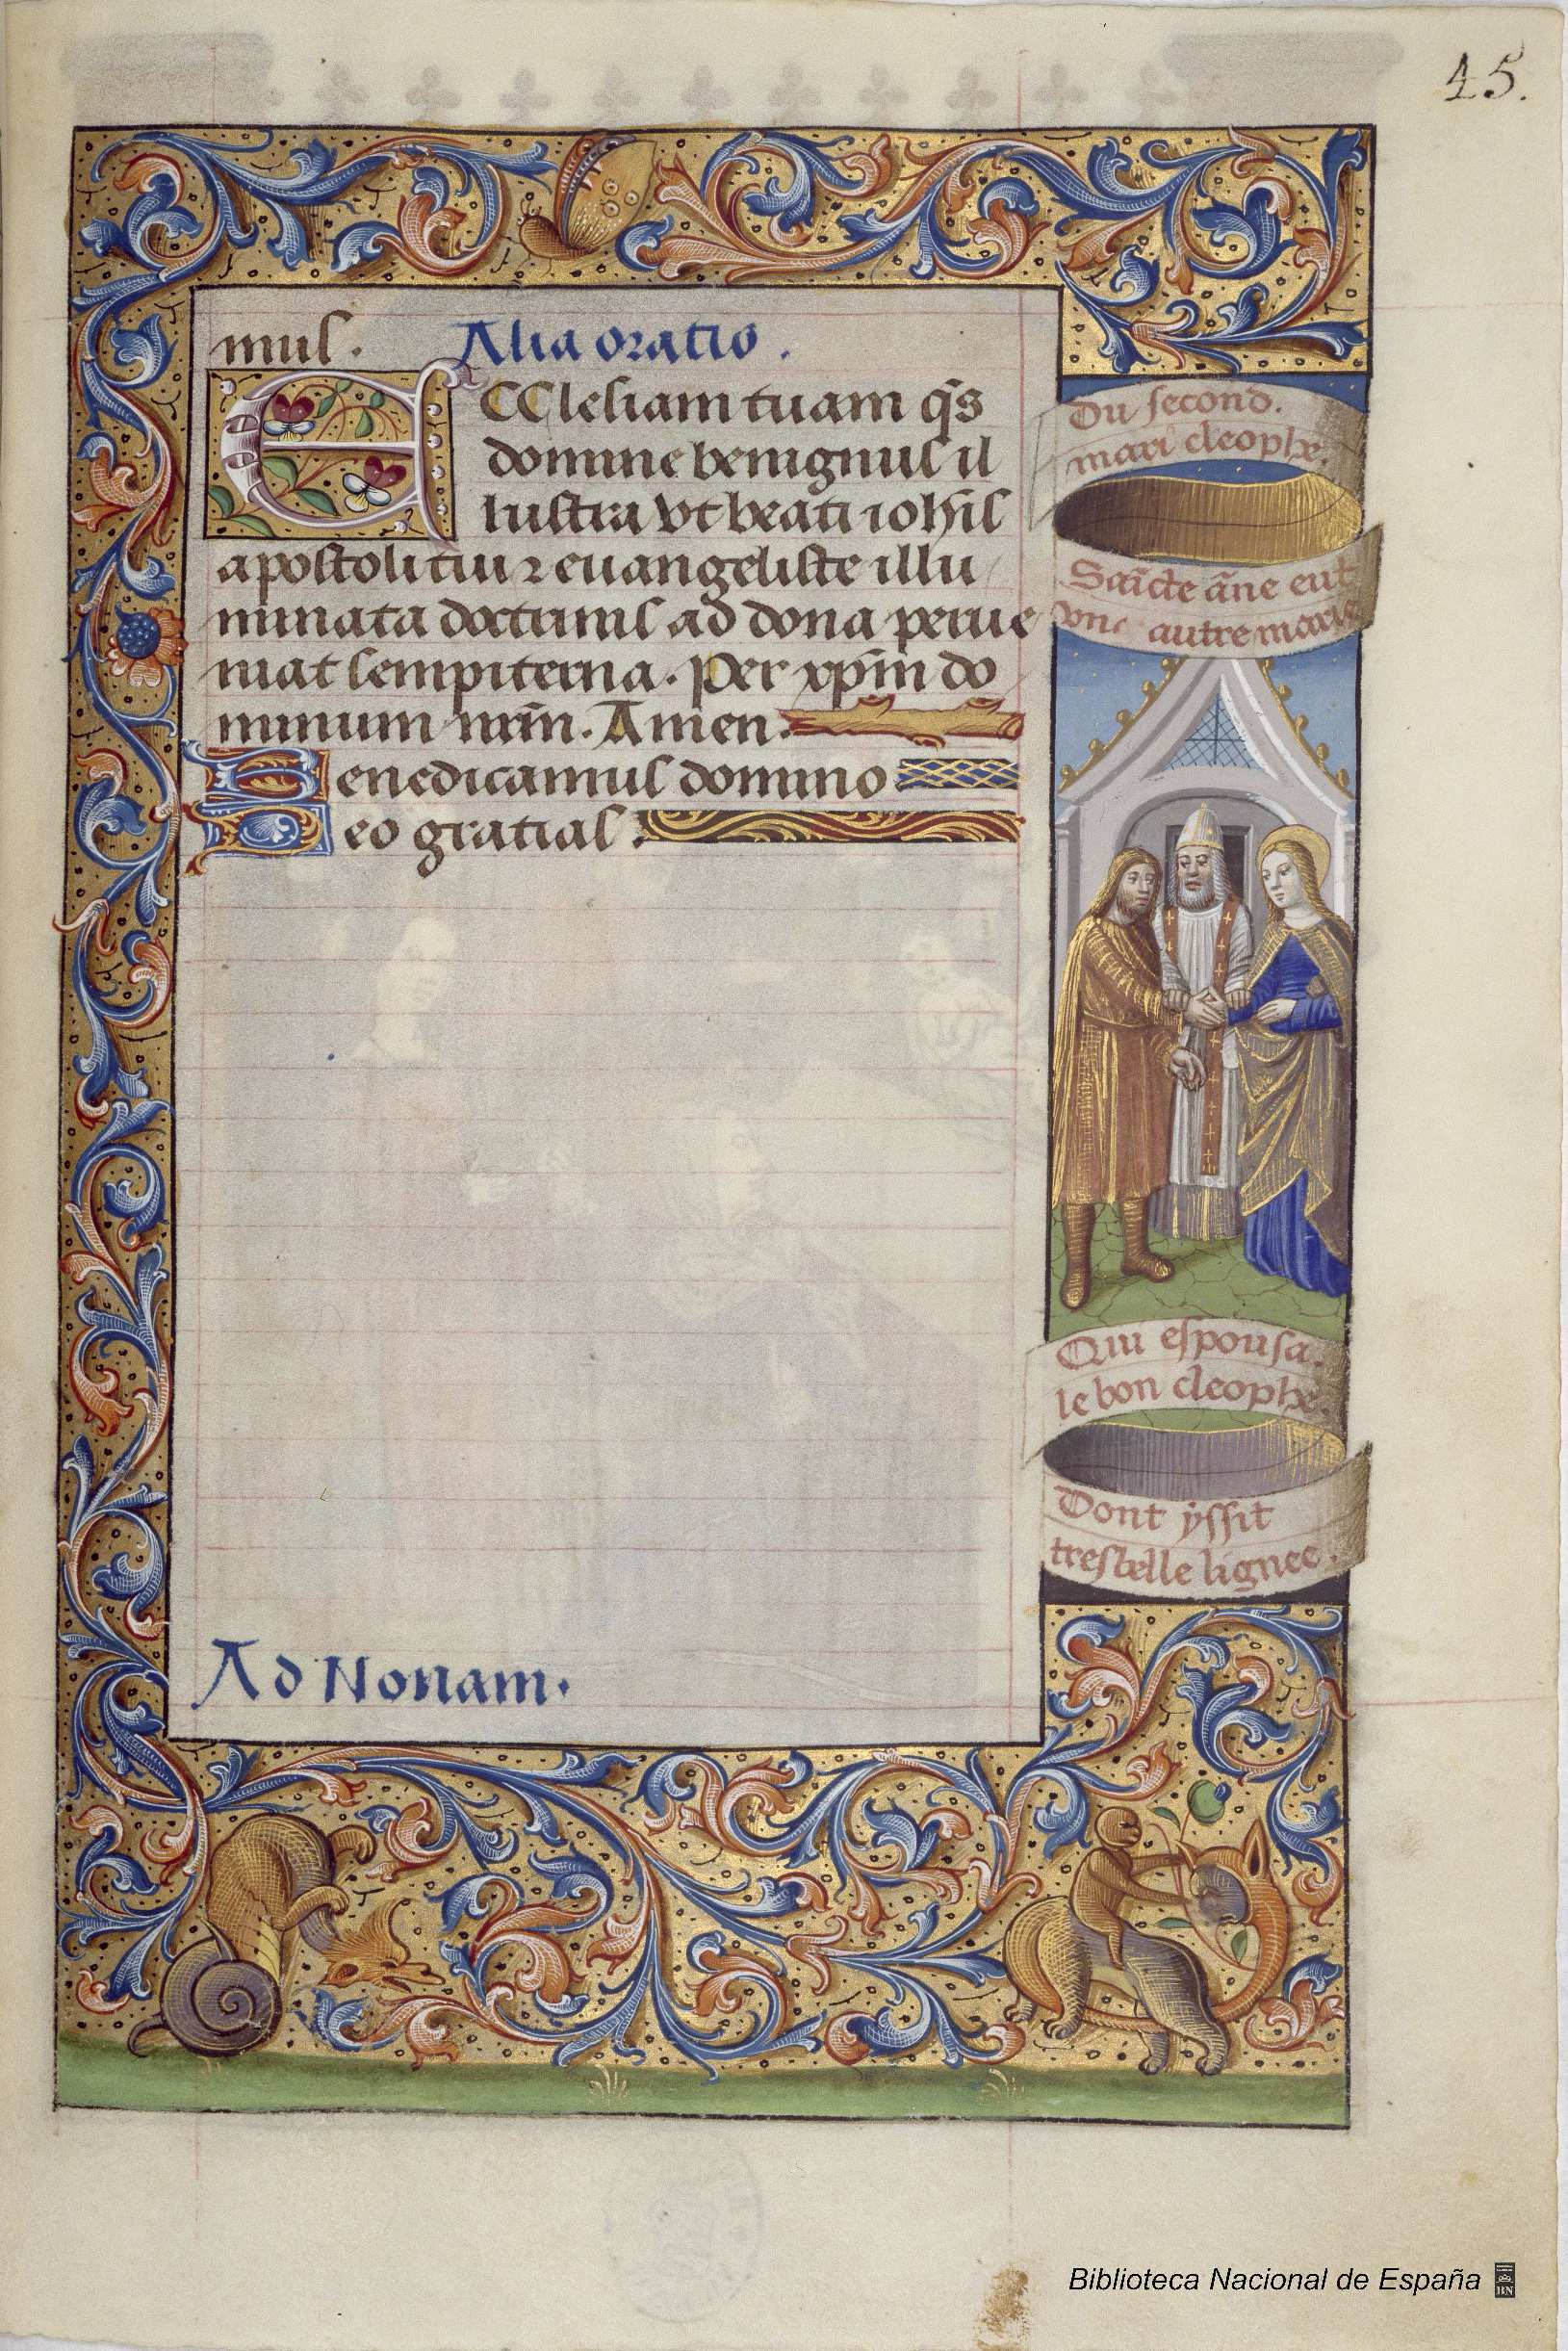 45.
mus. Alia oratio.
ECClesiam tuam q̃s
domine benignus il
lustra vt beati ioh̃is
apostoli tui ⁊ euangeliste illu
minata doctrinis ad dona perue
niat sempiterna. Per xp̃m do
minum nr̃m. Amen.
Benedicamus domino
Deo gratias.
Ad Nonam.
Du second.
mari cleophe.
Sãcte ãne eut
vne autre marie
Qui espousa.
le bon cleophe.
Dont yssit
tresbelle lignee.
Biblioteca Nacional de España
BN